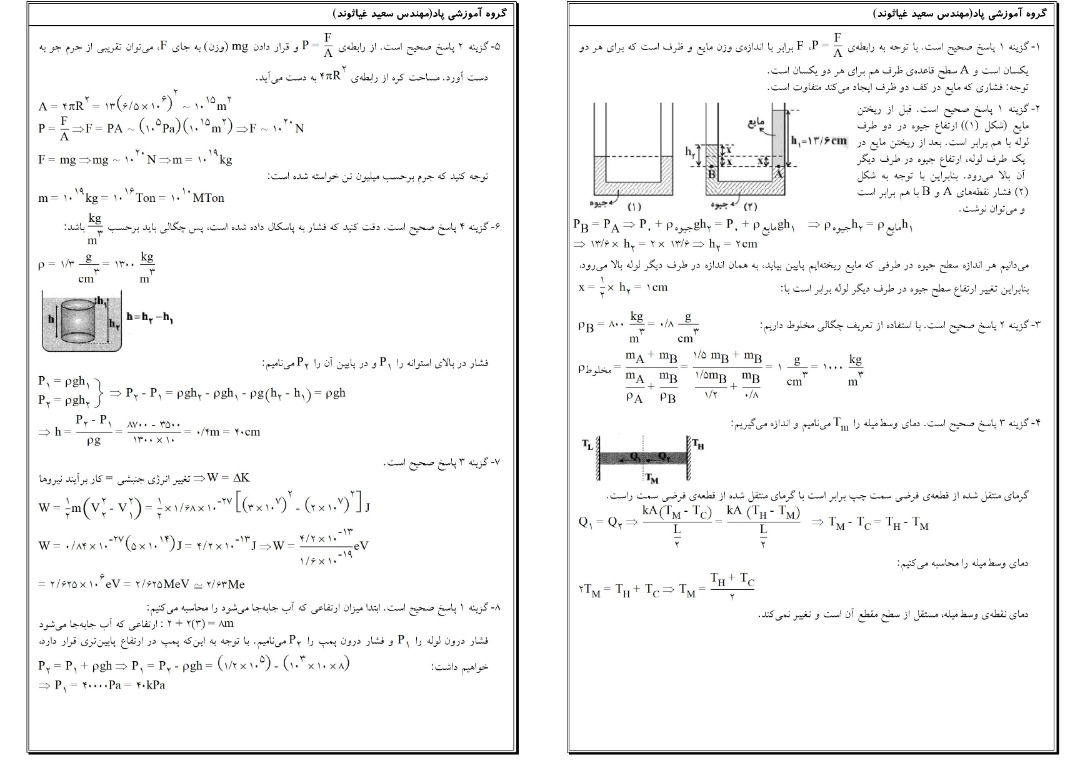 گروه آموزشی پاد(مهندس سعید غیاثوند)
۱- گزینه ۱ پاسخ صحیح است. با توجه به رابطه‌ی P = F/A، F برابر با اندازه‌ی وزن مایع و ظرف است که برای هر دو
یکسان است و A سطح قاعده‌ی ظرف هم برای هر دو یکسان است.
توجه: فشاری که مایع در کف دو ظرف ایجاد می‌کند متفاوت است.
۲- گزینه ۱ پاسخ صحیح است. قبل از ریختن
مایع (شکل (۱)) ارتفاع جیوه در دو طرف
لوله با هم برابر است. بعد از ریختن مایع در
یک طرف لوله، ارتفاع جیوه در طرف دیگر
آن بالا می‌رود. بنابراین با توجه به شکل
(۲) فشار نقطه‌های A و B با هم برابر است
و می‌توان نوشت.
مایع
h₁=۱۳/۶cm
h₂ x x x
B A
جیوه (۱) جیوه (۲)
P_B = P_A ⇒ P₀ + ρجیوه gh₂ = P₀ + ρمایع gh₁ ⇒ ρجیوه h₂ = ρمایع h₁
⇒ ۱۳/۶ × h₂ = ۲ × ۱۳/۶ ⇒ h₂ = ۲cm
می‌دانیم هر اندازه سطح جیوه در طرفی که مایع ریخته‌ایم پایین بیاید، به همان اندازه در طرف دیگر لوله بالا می‌رود،
بنابراین تغییر ارتفاع سطح جیوه در طرف دیگر لوله برابر است با: x = ۱/۲ × h₂ = ۱cm
۳- گزینه ۲ پاسخ صحیح است. با استفاده از تعریف چگالی مخلوط داریم: ρ_B = ۸۰۰ kg/m³ = ۰/۸ g/cm³
ρمخلوط = (m_A + m_B)/(m_A/ρ_A + m_B/ρ_B) = (۱/۵ m_B + m_B)/(۱/۵m_B/۱/۲ + m_B/۰/۸) = ۱ g/cm³ = ۱۰۰۰ kg/m³
۴- گزینه ۳ پاسخ صحیح است. دمای وسط میله را T_m می‌نامیم و اندازه می‌گیریم:
T_L Q₁ Q₂ T_H
T_M
گرمای منتقل شده از قطعه‌ی فرضی سمت چپ برابر است با گرمای منتقل شده از قطعه‌ی فرضی سمت راست.
Q₁ = Q₂ ⇒ kA(T_M - T_C)/(L/۲) = kA(T_H - T_M)/(L/۲) ⇒ T_M - T_C = T_H - T_M
دمای وسط میله را محاسبه می‌کنیم:
۲T_M = T_H + T_C ⇒ T_M = (T_H + T_C)/۲
دمای نقطه‌ی وسط میله، مستقل از سطح مقطع آن است و تغییر نمی‌کند.
گروه آموزشی پاد(مهندس سعید غیاثوند)
۵- گزینه ۲ پاسخ صحیح است. از رابطه‌ی P = F/A و قرار دادن mg (وزن) به جای F، می‌توان تقریبی از جرم جو به
دست آورد، مساحت کره از رابطه‌ی ۴πR² به دست می‌آید.
A = ۴πR² = ۱۳(۶/۵×۱۰⁶)² ~ ۱۰¹⁵m²
P = F/A ⇒ F = PA ~ (۱۰⁵Pa)(۱۰¹⁵m²) ⇒ F ~ ۱۰²⁰N
F = mg ⇒ mg ~ ۱۰²⁰N ⇒ m = ۱۰¹⁹kg
توجه کنید که جرم برحسب میلیون تن خواسته شده است:
m = ۱۰¹⁹kg = ۱۰¹⁶Ton = ۱۰¹⁰MTon
۶- گزینه ۴ پاسخ صحیح است. دقت کنید که فشار به پاسکال داده شده است، پس چگالی باید برحسب kg/m³ باشد:
ρ = ۱/۳ g/cm³ = ۱۳۰۰ kg/m³
h h₁ h₂ h = h₂ - h₁
فشار در بالای استوانه را P₁ و در پایین آن را P₂ می‌نامیم:
P₁ = ρgh₁
P₂ = ρgh₂ } ⇒ P₂ - P₁ = ρgh₂ - ρgh₁ - ρg(h₂ - h₁) = ρgh
⇒ h = (P₂ - P₁)/ρg = (۸۷۰۰ - ۳۵۰۰)/(۱۳۰۰ × ۱۰) = ۰/۴m = ۴۰cm
۷- گزینه ۳ پاسخ صحیح است.
تغییر انرژی جنبشی = کار برآیند نیروها ⇒ W = ΔK
W = ۱/۲ m(V₂² - V₁²) = ۱/۲ × ۱/۶۸ × ۱۰⁻²⁷[(۳×۱۰⁷)² - (۲×۱۰⁷)²] J
W = ۰/۸۴×۱۰⁻²⁷(۵×۱۰¹⁴)J = ۴/۲×۱۰⁻¹³J ⇒ W = (۴/۲×۱۰⁻¹³)/(۱/۶×۱۰⁻¹⁹) eV
= ۲/۶۲۵×۱۰⁶eV = ۲/۶۲۵MeV ≃ ۲/۶۳Me
۸- گزینه ۱ پاسخ صحیح است. ابتدا میزان ارتفاعی که آب جابه‌جا می‌شود را محاسبه می‌کنیم:
ارتفاعی که آب جابه‌جا می‌شود : ۲ + ۲(۳) = ۸m
فشار درون لوله را P₁ و فشار درون پمپ را P₂ می‌نامیم. با توجه به این‌که پمپ در ارتفاع پایین‌تری قرار دارد،
خواهیم داشت: P₂ = P₁ + ρgh ⇒ P₁ = P₂ - ρgh = (۱/۲×۱۰⁵) - (۱۰³×۱۰×۸)
⇒ P₁ = ۴۰۰۰۰Pa = ۴۰kPa